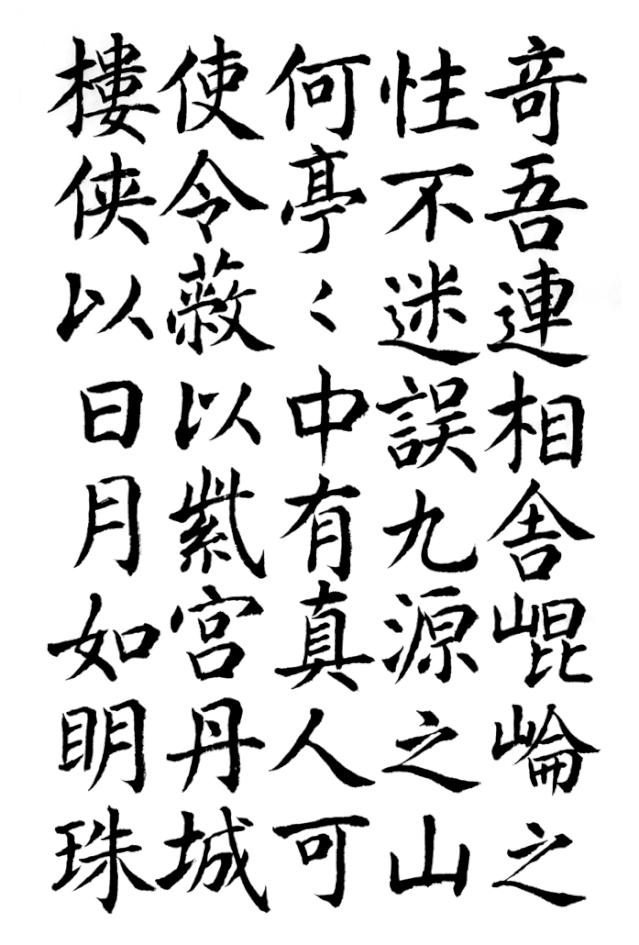 竒吾連相舎崐崘之
性不迷誤九源之山
何亭〻中有真人可
使令蔽以紫宮丹城
樓侠以日月如眀珠